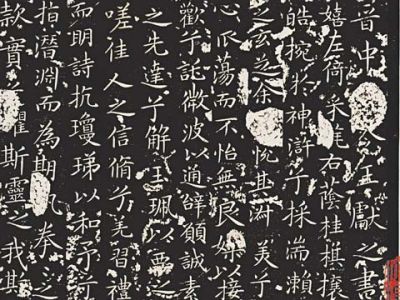 晉中令王獻之書
嬉左倚采旄右蔭桂棋攘
皓捥於神滸兮採湍瀨
之玄芝余悅其淑美兮
心振蕩而不怡無良媒以接
歡兮託微波以通辭願誠素
之先達兮解玉珮以要之
嗟佳人之信脩兮羌習禮
而明詩抗瓊珶以和予兮
指潛淵而為期執拳之
款實兮懼斯靈之我欺